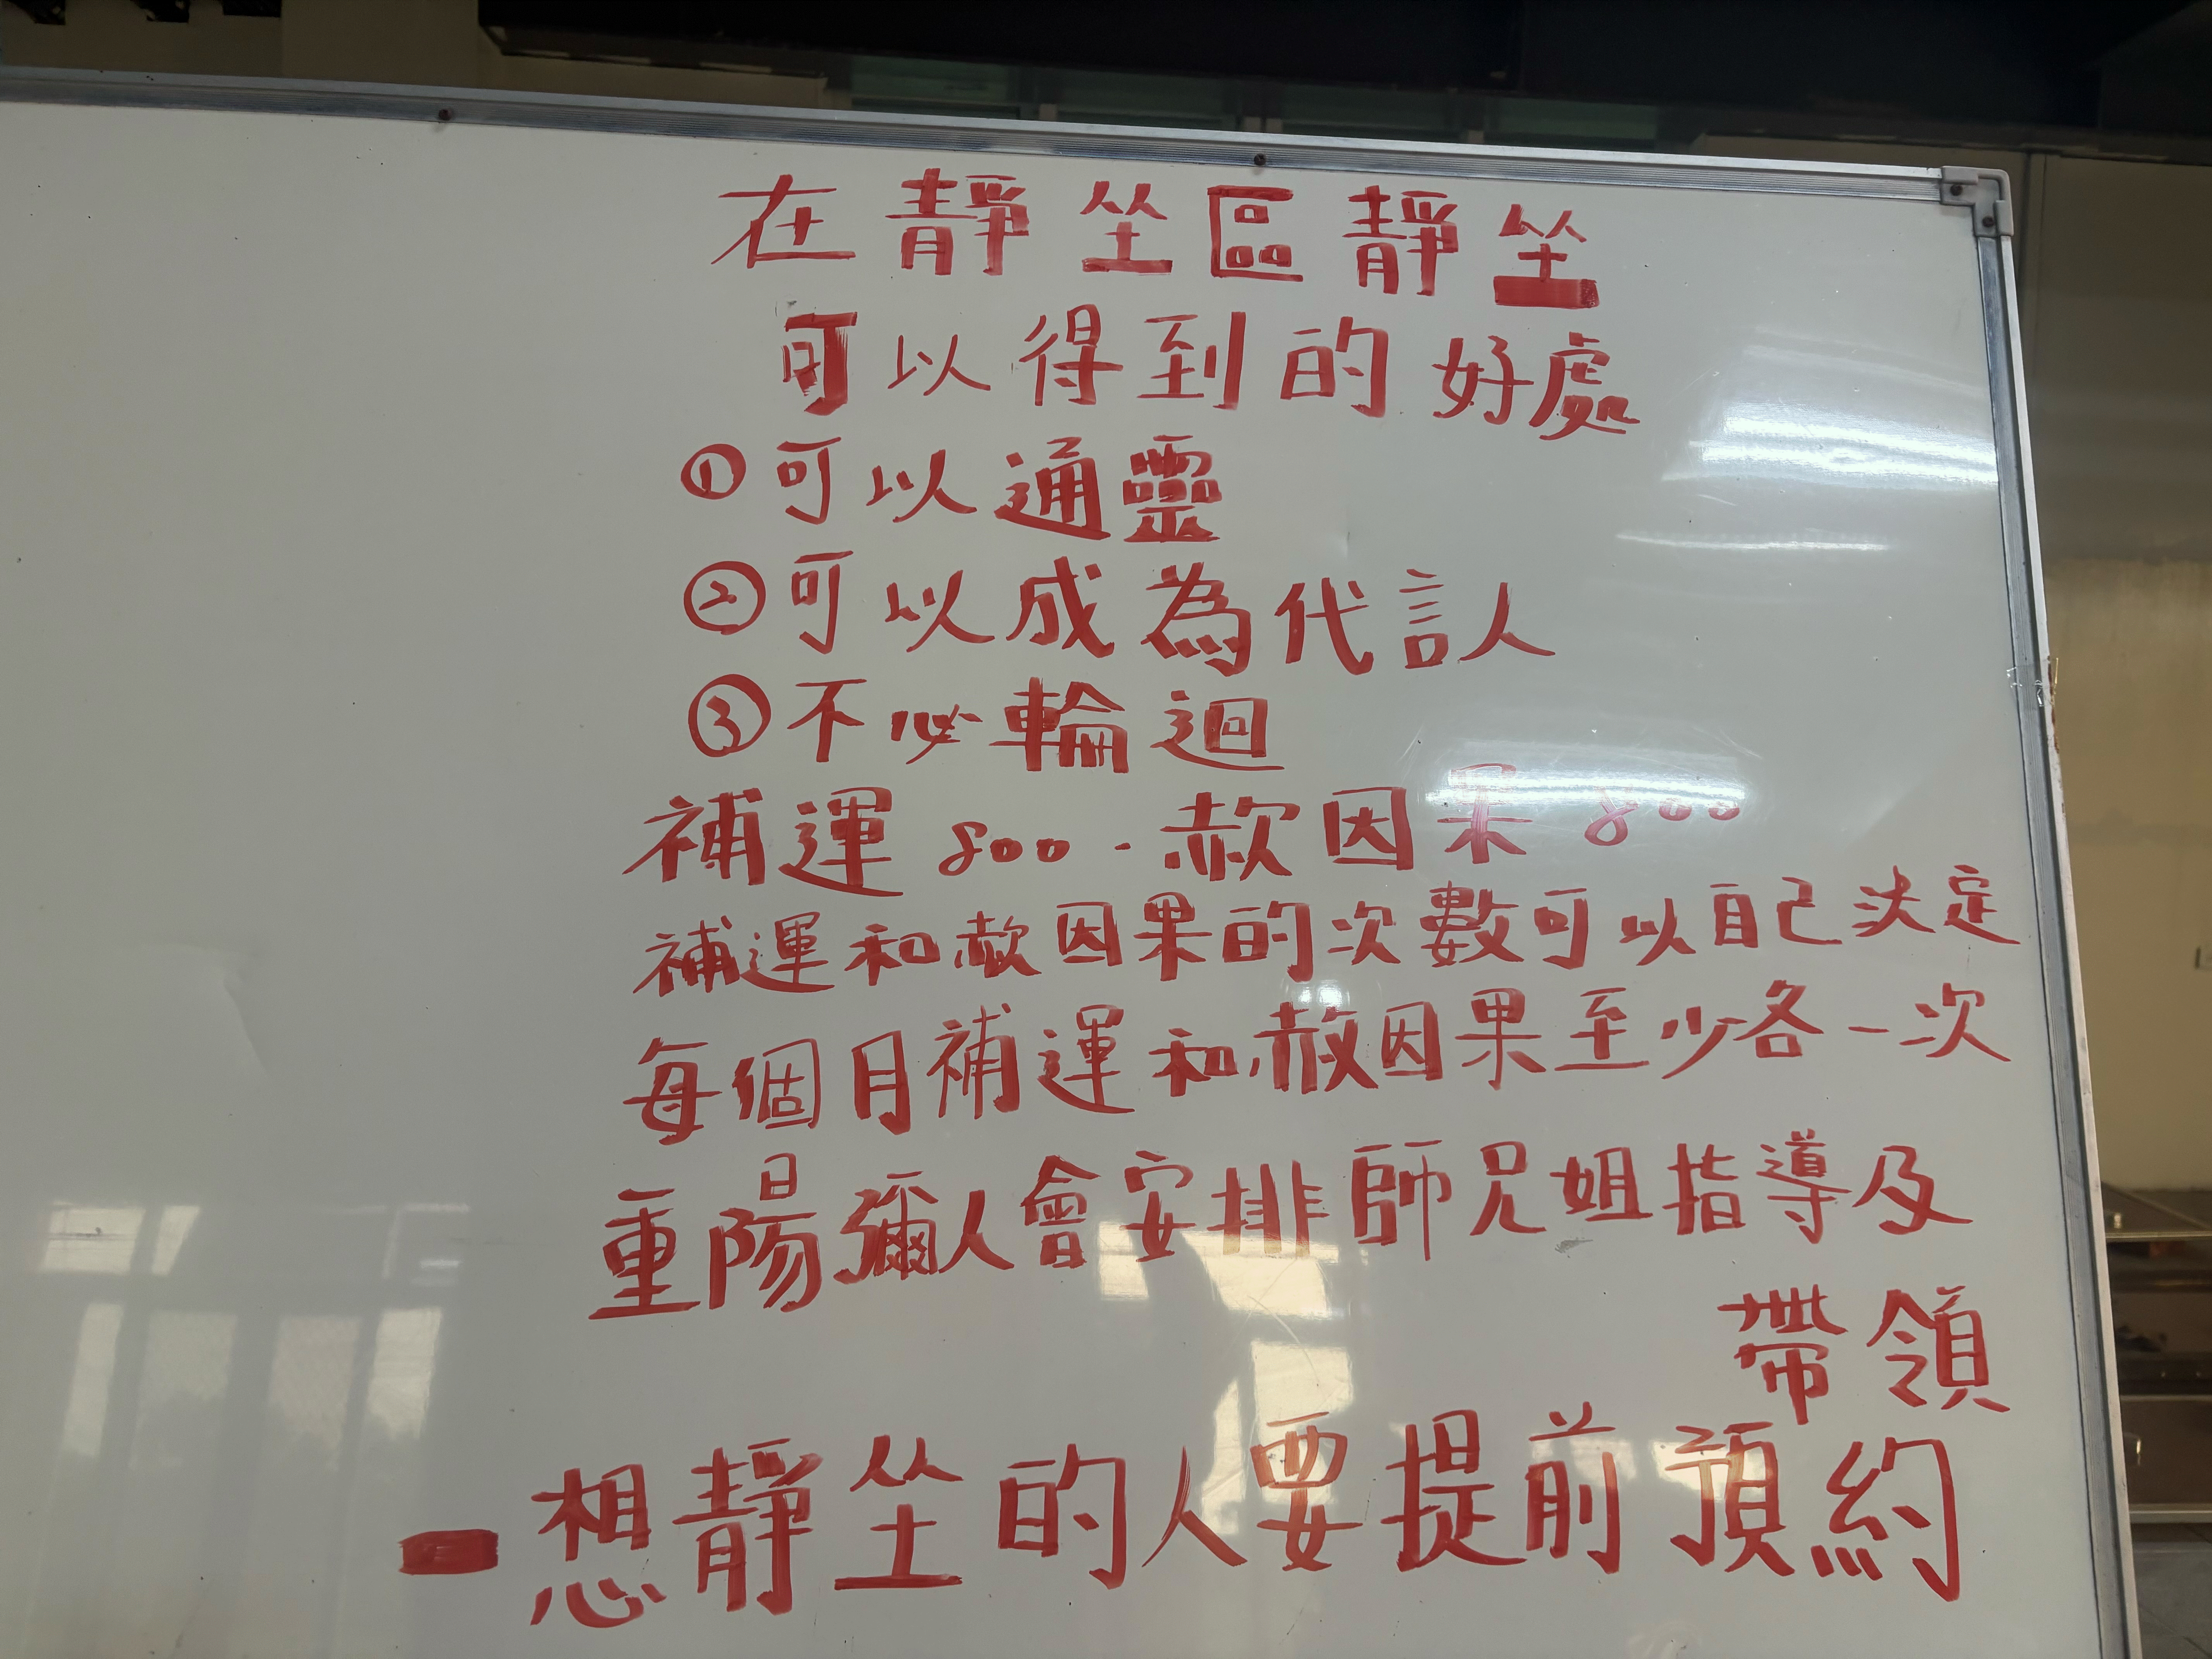 在靜坐區靜坐
可以得到的好處
①可以通靈
②可以成為代言人
③不必輪迴
補運800.赦因果800
補運和赦因果的次數可以自己決定
每個月補運和赦因果至少各一次
重陽彌人會安排師兄姐指導及
帶領
一想靜坐的人要提前預約